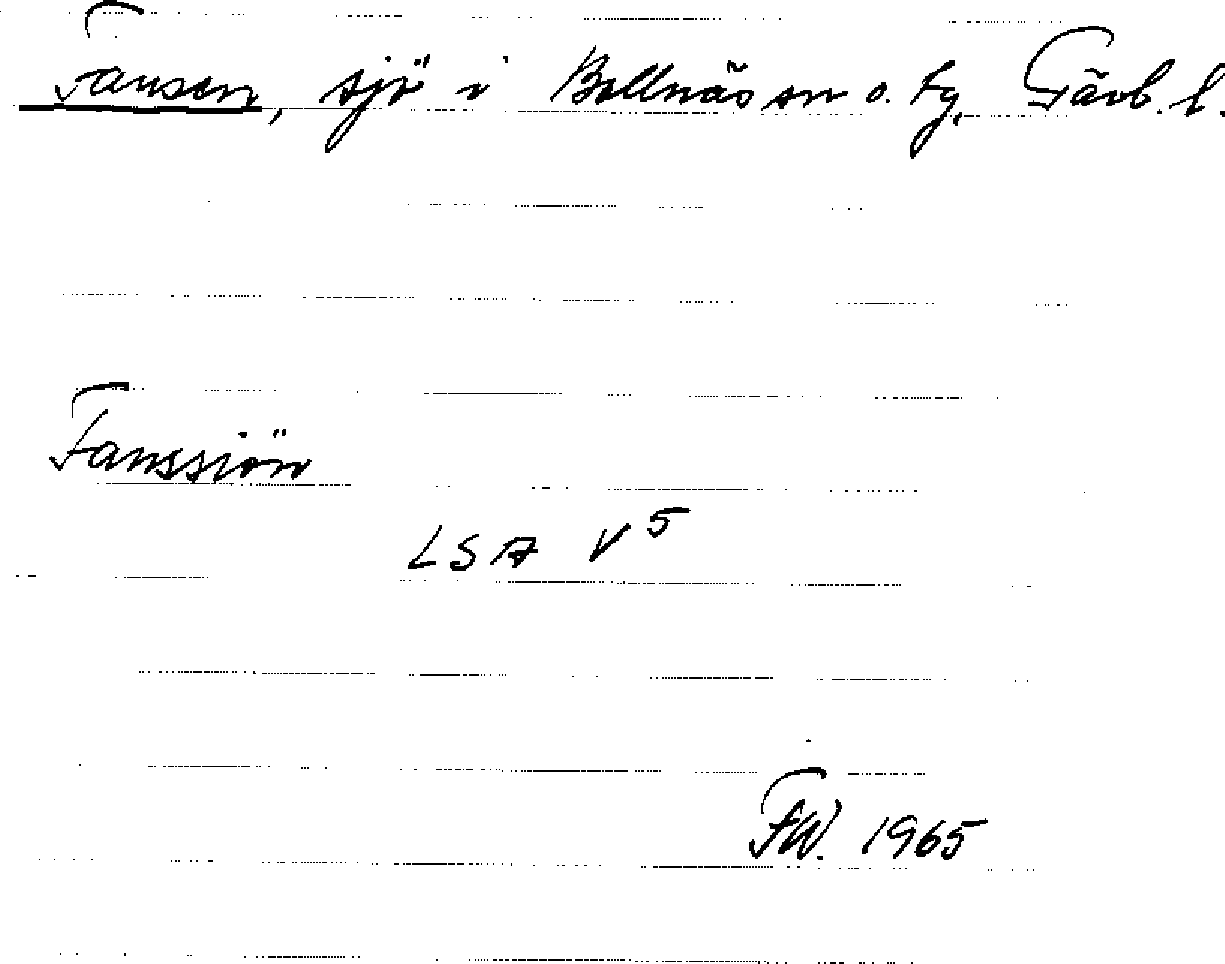 Fansen, sjö i Bollnäs sn o. tg, Gävb. l.
Fanssiön
LSA V⁵
FW. 1965